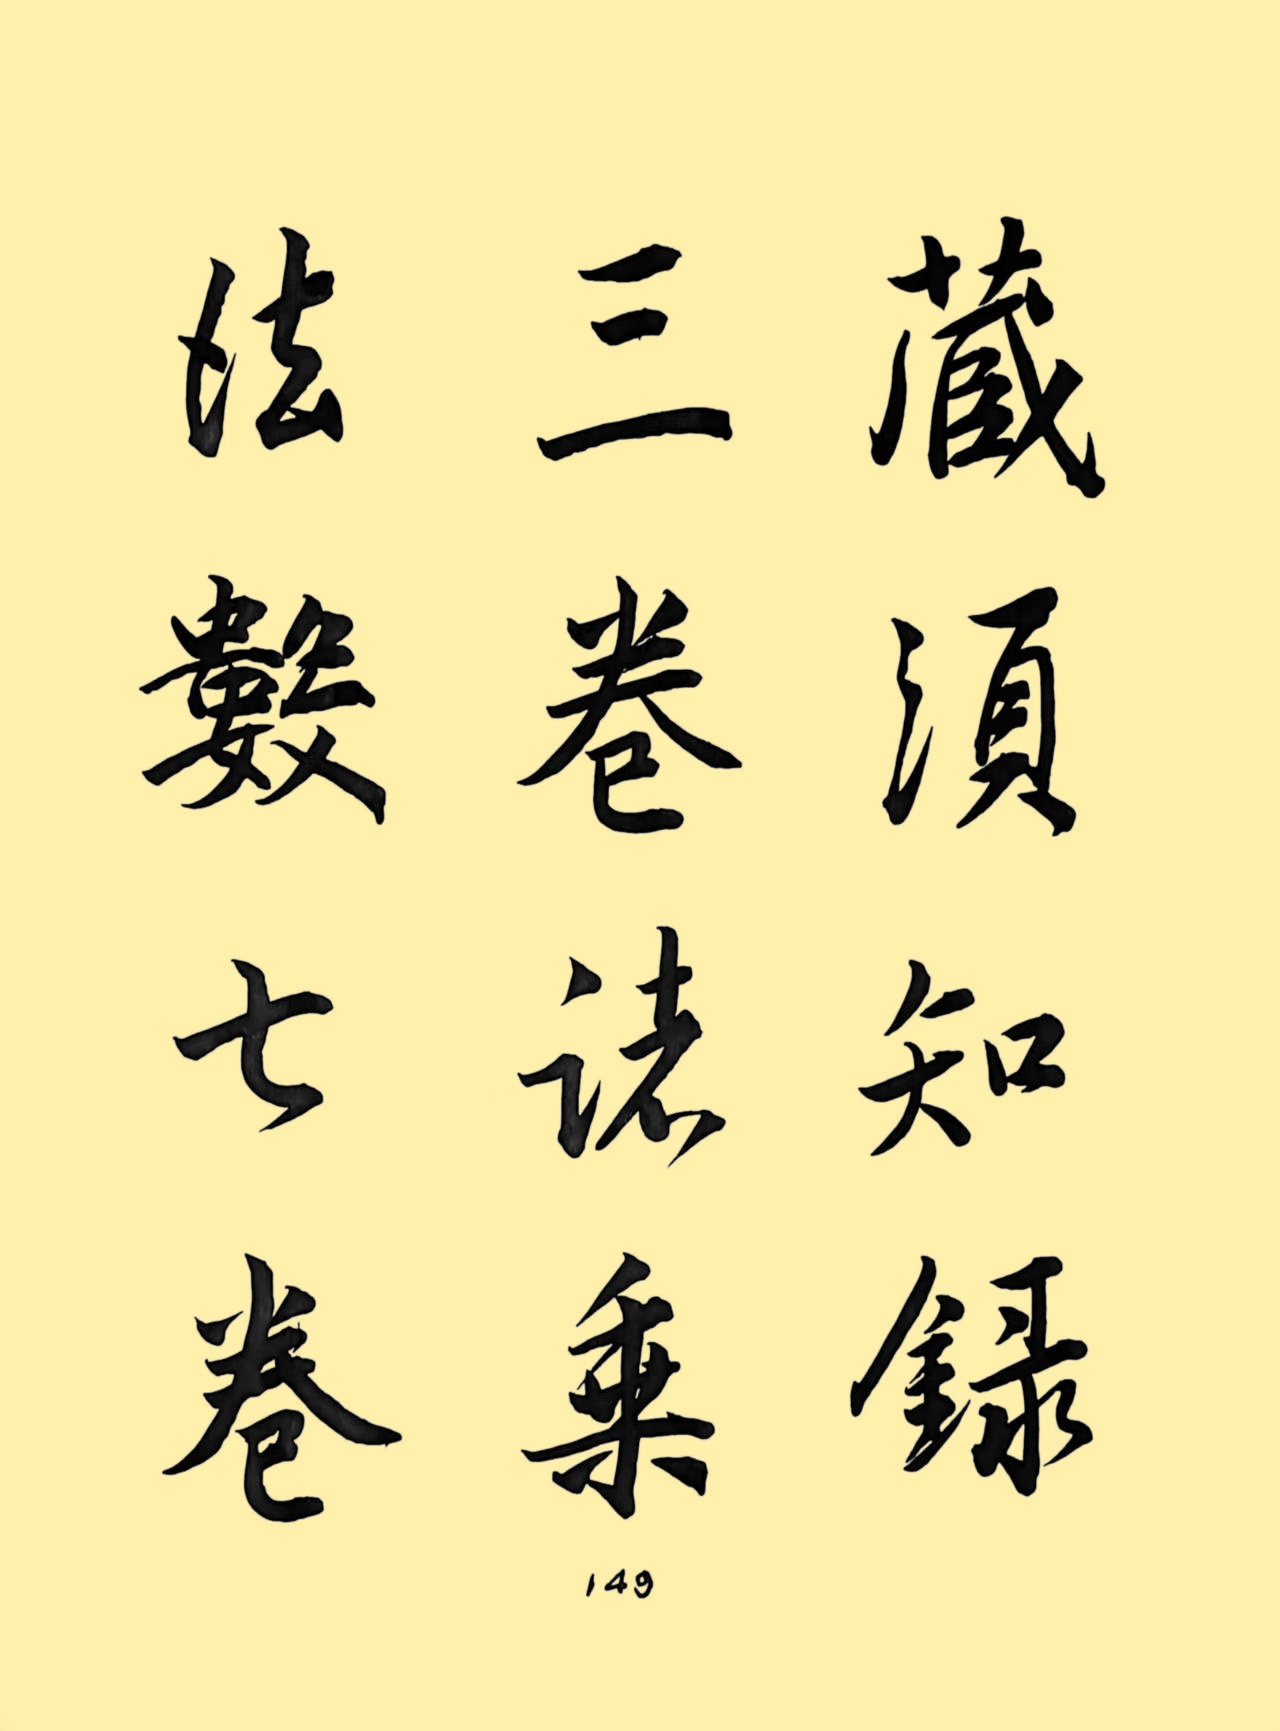 藏須知錄
三卷諸乘
法數七卷
149